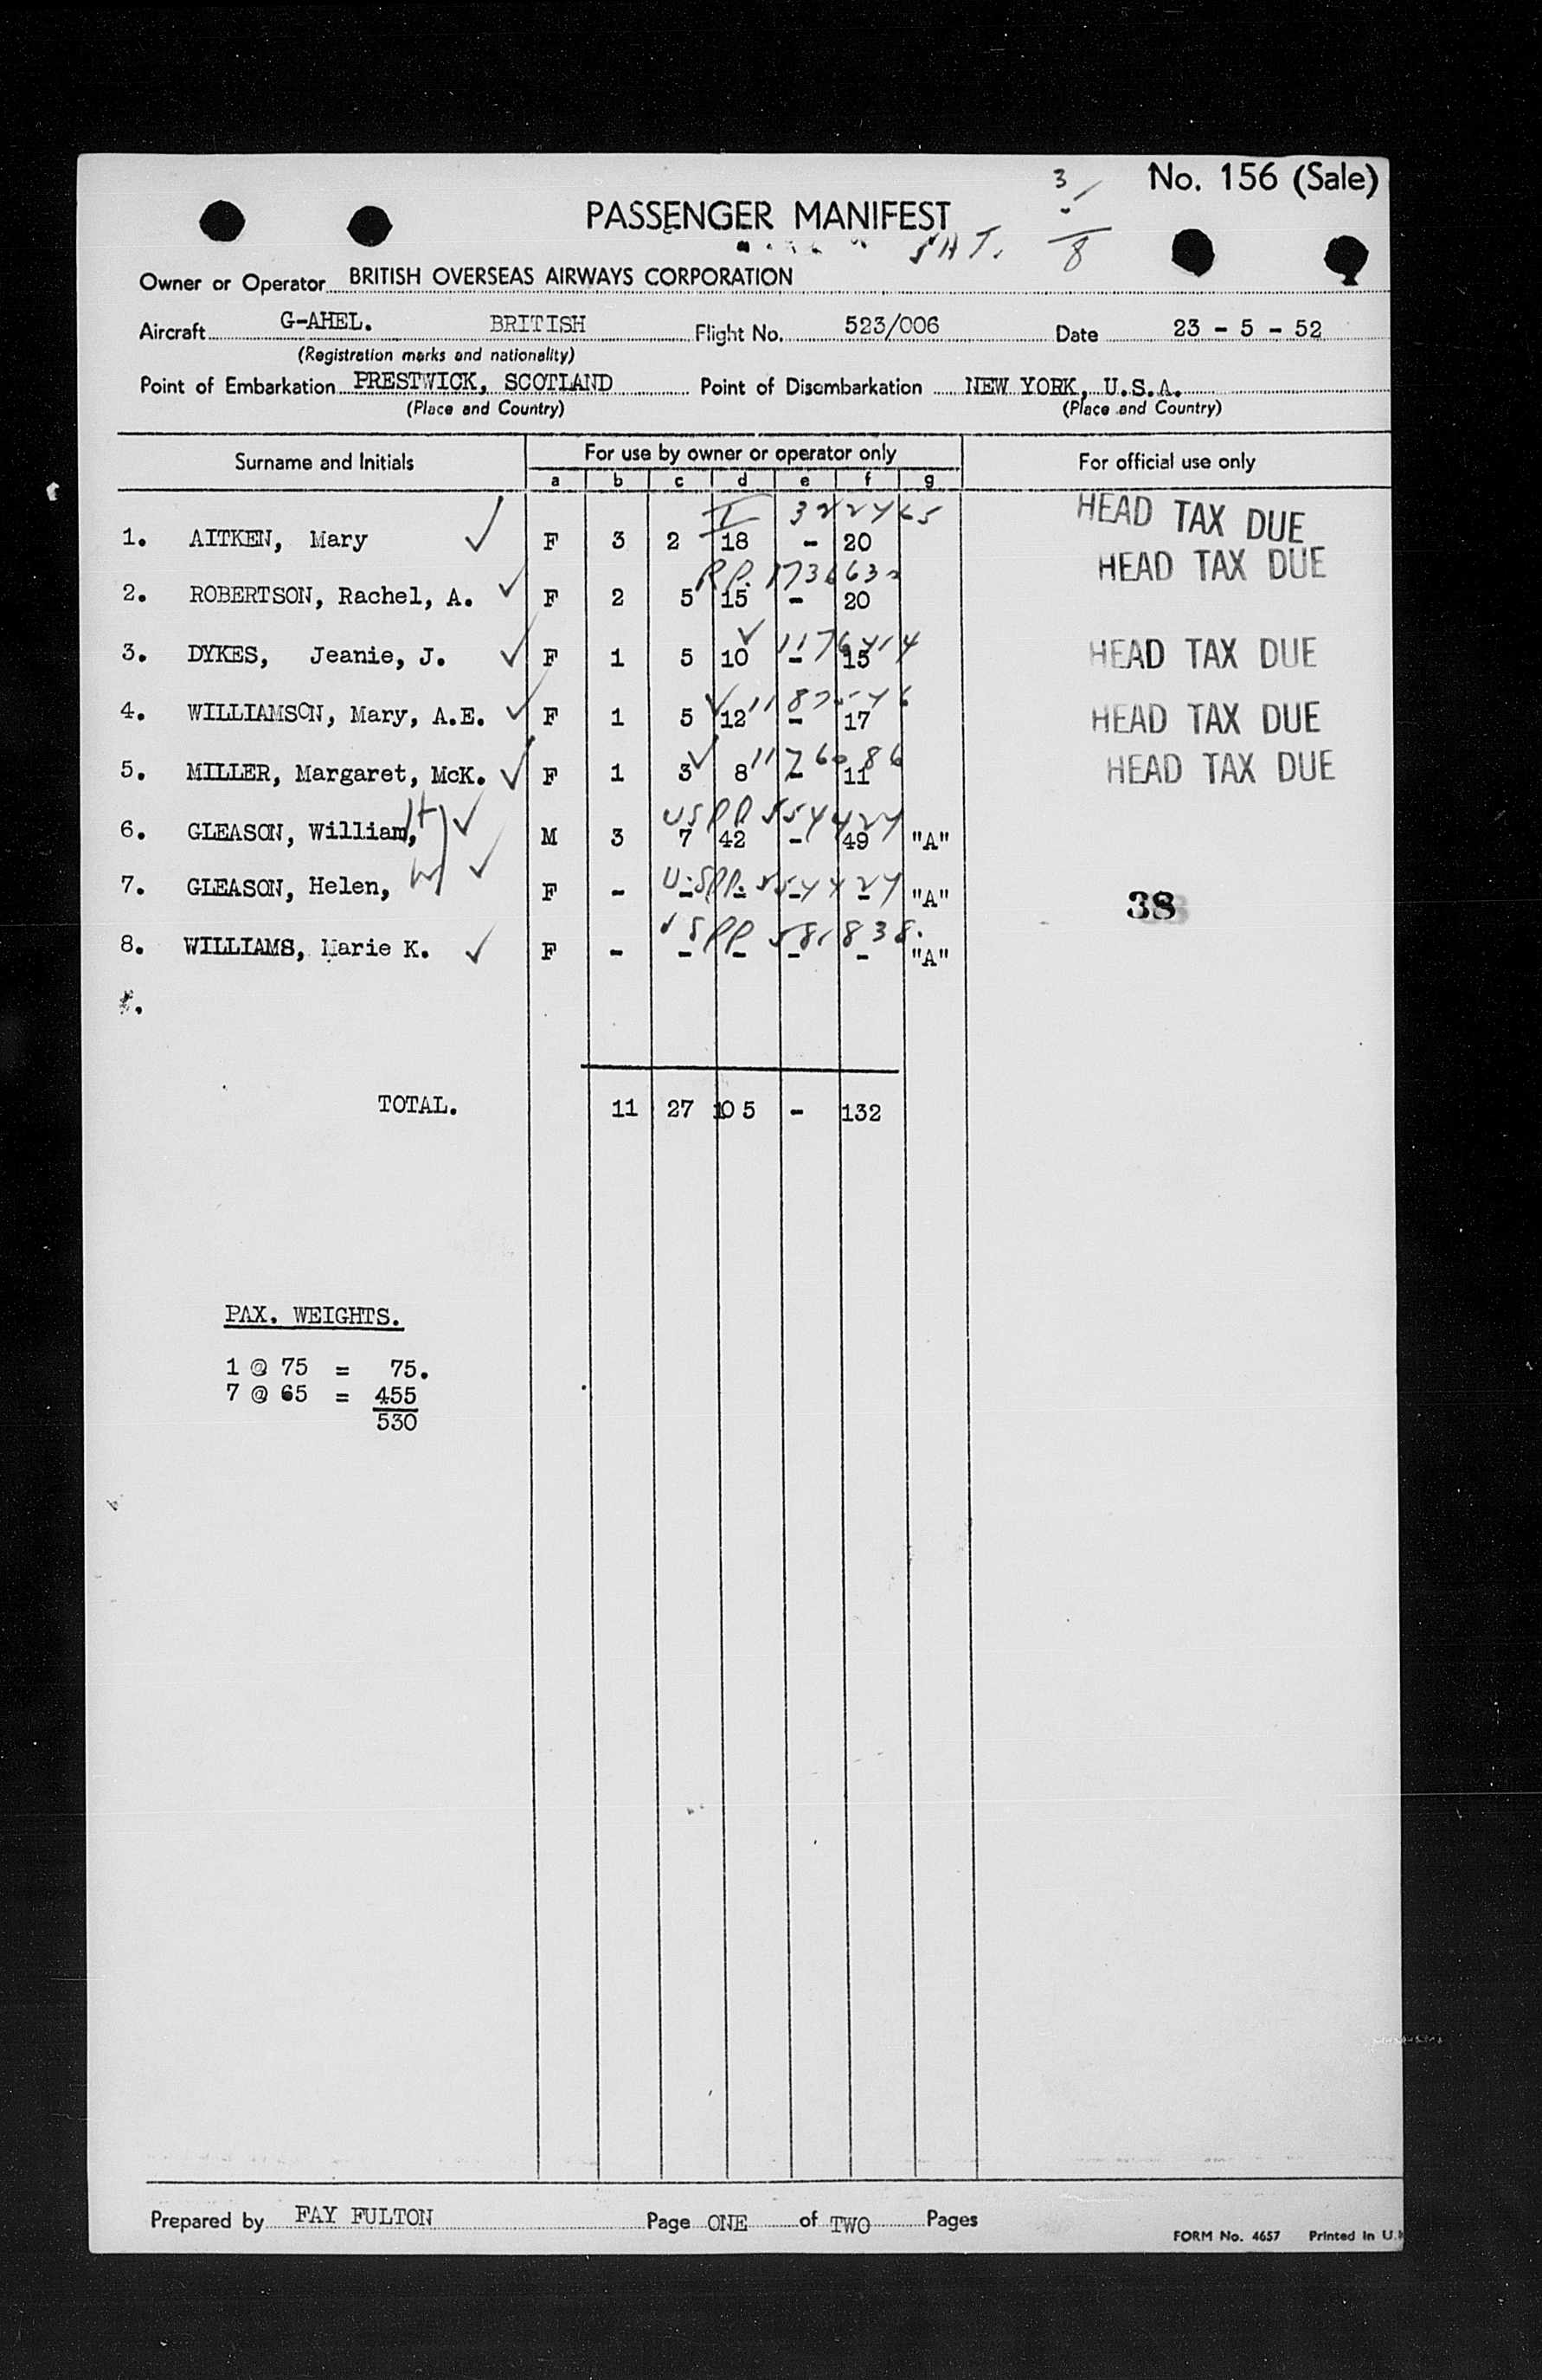 No. 156 (Sale)
3/8
PASSENGER MANIFEST
Owner or Operator BRITISH OVERSEAS AIRWAYS CORPORATION
Aircraft G-AHEL. BRITISH Flight No. 523/006 Date 23 - 5 - 52
(Registration marks and nationality)
Point of Embarkation PRESTWICK, SCOTLAND Point of Disembarkation NEW YORK, U.S.A.
(Place and Country) (Place and Country)
Surname and Initials For use by owner or operator only For official use only
a b c d e f g
HEAD TAX DUE
1. AITKEN, Mary F 3 2 18 - 20
HEAD TAX DUE
2. ROBERTSON, Rachel, A. F 2 5 15 - 20
3. DYKES, Jeanie, J. F 1 5 10 - 15 HEAD TAX DUE
4. WILLIAMSON, Mary, A.E. F 1 5 12 - 17 HEAD TAX DUE
5. MILLER, Margaret, McK. F 1 3 8 - 11 HEAD TAX DUE
USPP 554424
6. GLEASON, William, H M 3 7 42 - 49 "A"
U.SPP. 554424
7. GLEASON, Helen, W F - - - - - "A" 38
USPP 581838.
8. WILLIAMS, Marie K. F - - - - - "A"
TOTAL. 11 27 105 - 132
PAX. WEIGHTS.
1 @ 75 = 75.
7 @ 65 = 455
530
Prepared by FAY FULTON Page ONE of TWO Pages
FORM No. 4657 Printed in U.